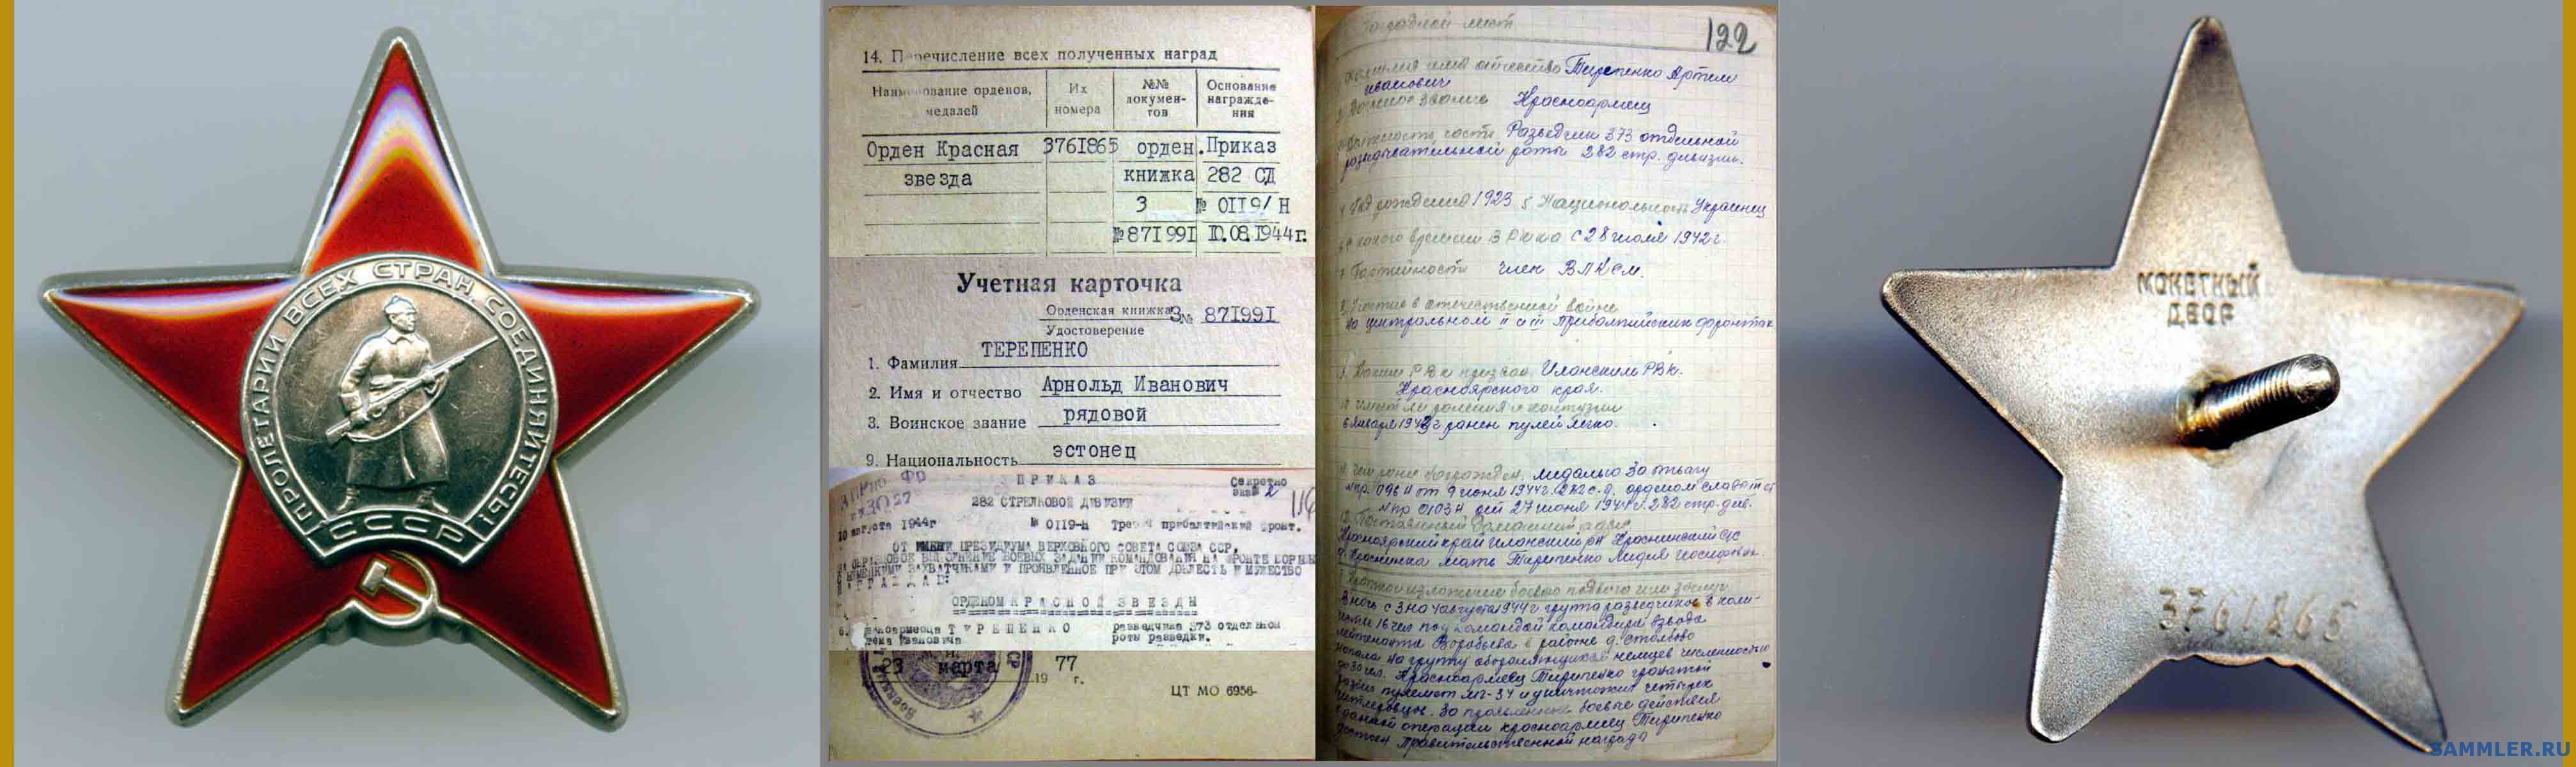 ПРОЛЕТАРИИ ВСЕХ СТРАН, СОЕДИНЯЙТЕСЬ!
СССР
14. Перечисление всех полученных наград
Наименование орденов, медалей
Их номера
№№ документов
Основание награждения
Орден Красная 3761865 орден. Приказ
звезда книжка 282 СД
З № 0119/Н
№871991 10.08.1944г.
Учетная карточка
Орденская книжка З № 871991
Удостоверение
1. Фамилия ТЕРЕПЕНКО
2. Имя и отчество Арнольд Иванович
3. Воинское звание рядовой
9. Национальность эстонец
ПРИКАЗ Секретно
282 СТРЕЛКОВОЙ ДИВИЗИИ
10 августа 1944г № 0119-н Третий прибалтийский фронт.
ОТ ИМЕНИ ПРЕЗИДИУМА ВЕРХОВНОГО СОВЕТА СОЮЗА ССР,
ВЫПОЛНЕНИЕ БОЕВЫХ ЗАДАНИЙ КОМАНДОВАНИЯ НА ФРОНТЕ БОРЬБЫ
НЕМЕЦКИМИ ЗАХВАТЧИКАМИ И ПРОЯВЛЕННОЕ ПРИ ЭТОМ ДОБЛЕСТЬ И МУЖЕСТВО
ОРДЕНОМ КРАСНОЙ ЗВЕЗДЫ
6. ТУРЕПЕНКО разведчика 373 отдельной
Ивановича роты разведки.
23 марта 1977 г.
ЦТ МО 6956-
122
Наградной лист
Фамилия имя отчество Тирепенко Артем
Иванович
Военное звание Красноармеец
Должность, часть Разведчик 373 отдельной
разведывательной роты 282 стр. дивизии.
Год рождения 1923 5. Национальность Украинец
С какого времени в РККА с 28 июля 1942г.
7. Партийность член ВЛКСМ.
8. Участие в отечественной войне
На центральном II и III Прибалтийских фронтах
Каким РВК призван Иланским РВК.
Красноярского края.
Имеет ли ранения и контузии
6 января 1943г ранен пулей легко.
Чем ранее награжден медалью За отвагу
27 июня 1944г. 282 стр. див.
Красноярский край Иланский
мать Тирипенко Лидия
Краткое изложение боевого подвига или заслуг
В ночь с 3 на 4 августа 1944г. группа разведчиков в коли-
честве 16 чел под командой командира взвода
лейтенанта Воробьева в районе д.
напала на группу обороняющихся немцев численностью
до 30 чел. Красноармеец Тирипенко гранатой
пулемет МГ-34 и уничтожил четырех
гитлеровцев. За проявленные боевые действия
в данной операции красноармеец Тирипенко
достоин правительственной награды
МОНЕТНЫЙ
ДВОР
3761865
SAMMLER.RU